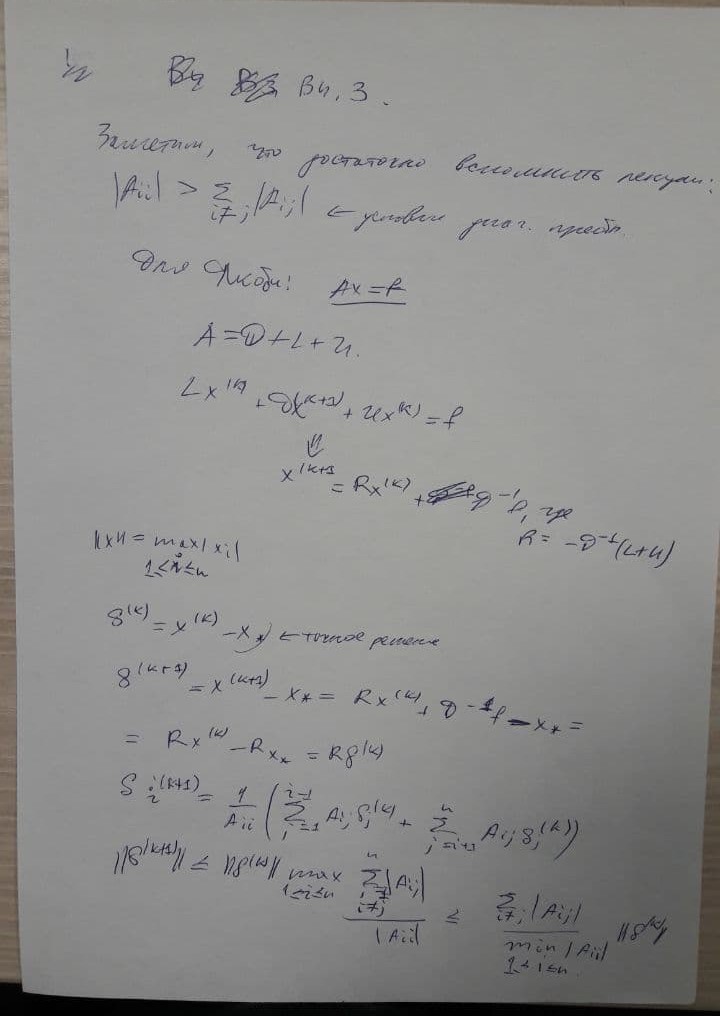 Вч. 3.
Заметим, что достаточно вспомнить лекции:
|Aii| > Σ_{i≠j} |Aij| ← условие диаг. преобл.
Для Якоби: Ax = f
A = D + L + U.
Lx^(k) + Dx^(k+1) + Ux^(k) = f
⇓
x^(k+1) = Rx^(k) + D^-1 f, где
R = -D^-1(L+U)
||x|| = max|xi|
1≤i≤n
δ^(k) = x^(k) - x* ← точное решение
δ^(k+1) = x^(k+1) - x* = Rx^(k) + D^-1 f - x* =
= Rx^(k) - Rx* = Rδ^(k)
δi^(k+1) = 1/Aii ( Σ_{j=1}^{i-1} Aij δj^(k) + Σ_{j=i+1}^{n} Aij δj^(k) )
||δ^(k+1)|| ≤ ||δ^(k)|| max_{1≤i≤n} Σ_{i≠j}^{n} |Aij| / |Aii| ≤ Σ_{i≠j} |Aij| / min_{1≤i≤n} |Aii| ||δ^(k)||